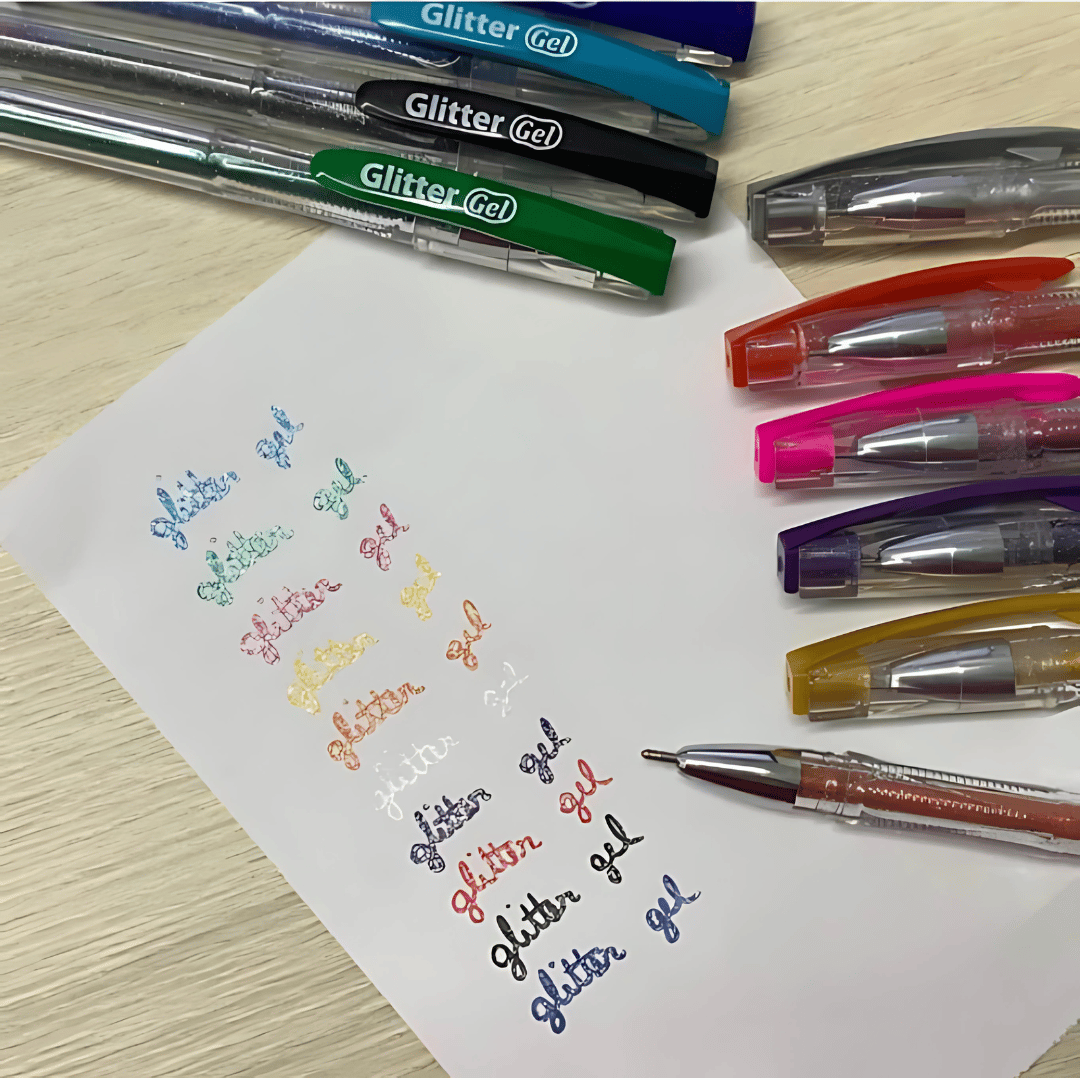 Glitter Gel
Glitter Gel
Glitter Gel
glitter gel
glitter gel
glitter gel
glitter gel
glitter gel
glitter gel
glitter gel
glitter gel
glitter gel
glitter gel